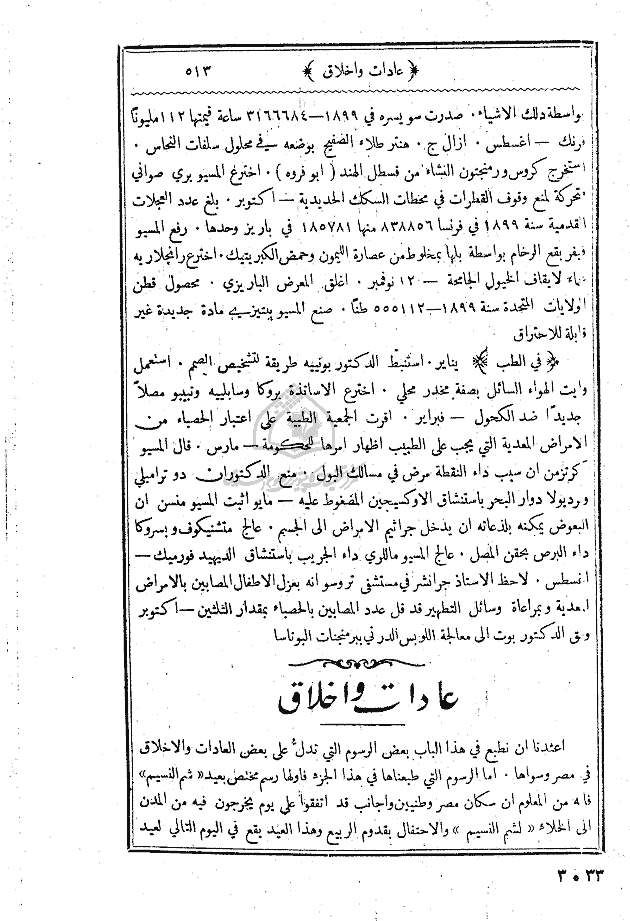 ﴿ عادات واخلاق ﴾ ٥١٣
بواسطة ذلك الاشياء . صدرت سويسره في ١٨٩٩ — ٣١٦٦٦٨٤ ساعة قيمتها ١١٢ مليونًا
فرنك — اغسطس . ازال ج . هنتر طلاء الصفيح بوضعه في محلول سلفات النحاس .
استخرج كروس ورمنجتون النشاء من قسطل الهند ( ابو فروه ) . اخترع المسيو بري صواني
متحركة لمنع وقوف القطرات في محطات السكك الحديدية — اكتوبر . بلغ عدد العجلات
القدمية سنة ١٨٩٩ في فرنسا ٨٣٨٨٥٦ منها ١٨٥٧٨١ في باريز وحدها . رفع المسيو
فيفر بقع الرخام بواسطة بلها بمخلوط من عصارة الليمون وحمض الكبريتيك . اخترع رانجلاريه
لايقاف الخيول الجامحة — ١٢ نوفمبر . اغلق المعرض الباريزي . محصول قطن
الولايات المتحدة سنة ١٨٩٩ — ٥٥٥١١٢ طنًا . صنع المسيو بيتيزيي مادة جديدة غير
قابلة للاحتراق
﴿ في الطب ﴾ يناير . استنبط الدكتور بونييه طريقة لتشخيص الصم . استعمل
وايت الهواء السائل بصفة مخدر محلي . اخترع الاساتذة بروكا وسابلييه وتيبو مصلاً
جديدًا ضد الكحول — فبراير . اقرت الجمعية الطبية على اعتبار الحصباء من
الامراض المعدية التي يجب على الطبيب اظهار امرها للحكومة — مارس . قال المسيو
كرتزمن ان سبب داء النقطة مرض في مسالك البول . منع الدكتوران دو ترامبلي
وبرديولا دوار البحر باستنشاق الاوكسيجين المضغوط عليه — مايو اثبت المسيو منسن ان
البعوض يمكنه بلذعاته ان يدخل جراثيم الامراض الى الجسم . عالج متشنيكوف وبسروكا
داء البرص بحقن المصل . عالج المسيو ماللري داء الجريب باستنشاق الديهيد فورميك —
اغسطس . لاحظ الاستاذ جرانشر في مستشفى تروسو انه بعزل الاطفال المصابين بالامراض
المعدية وبمراعاة وسائل التطهير قد قل عدد المصابين بالحصباء بمقدار الثلثين — اكتوبر
وفق الدكتور بوت الى معالجة اللوبس الدرني ببرمنجنات البوتاسا
عادات واخلاق
اعتدنا ان نطبع في هذا الباب بعض الرسوم التي تدلُّ على بعض العادات والاخلاق
في مصر وسواها . اما الرسوم التي طبعناها في هذا الجزء فاولها رسم مختص بعيد « شم النسيم »
فانه من المعلوم ان سكان مصر وطنيين واجانب قد اتفقوا على يوم يخرجون فيه من المدن
الى الخلاء « لشم النسيم » والاحتفال بقدوم الربيع وهذا العيد يقع في اليوم التالي لعيد
٣ ٥ ٣٣